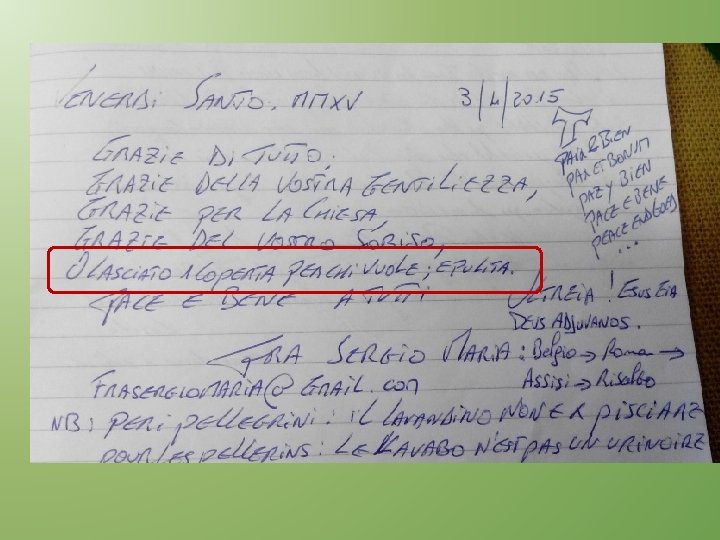 VENERDi SANTO. MMXV 3/4/2015
GRAZIE Di TUTTO.
GRAZIE DELLA VOSTRA GENTILIEZZA,
GRAZIE PER LA CHIESA,
GRAZIE DEL VOSTRO SORISO,
O LASCIATO 1 COPERTA PER CHI VUOLE; E PULITA.
PACE E BENE A TUTTi
T
PAIX & BIEN
PAX ET BONUM
PAZ Y BIEN
PACE E BENE
PEACE END GOOD
...
ULTREIA! ESUS EIA
DEUS ADJUVANOS.
FRA SERGIO MARIA: Belgio → Roma →
Assisi → Risalgo
FRASERGIOMARIA@GMAIL.COM
NB: PER i PELLEGRiNi: iL LAVANDINO NON E X PISCIARE
POUR LES PELLERINS: LE LAVABO N'EST PAS UN URINOIRE